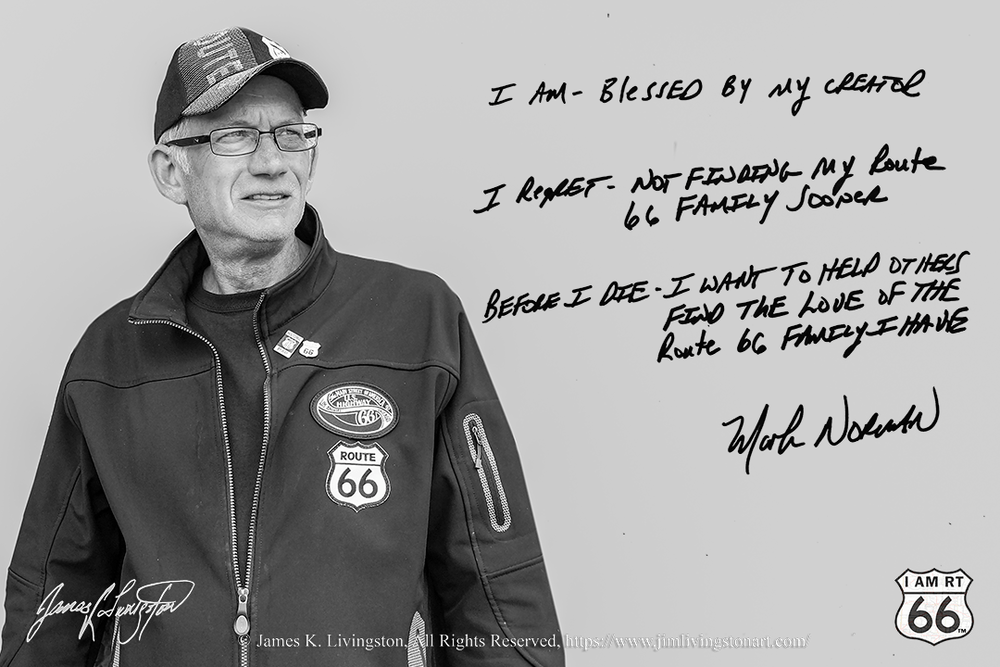 I AM - BlESSED BY MY CREATOR
I RegRET - NOT FINDING MY Route
66 FAMILY SOONER
BEFORE I DIE - I WANT TO HELP OTHERS
FIND THE LOVE OF THE
Route 66 FAMILY I HAVE
Mark NORMAN
U.S.
HIGHWAY
66
ROUTE
66
66
James K. Livingston
© James K. Livingston, All Rights Reserved, https://www.jimlivingstonart.com/
I AM RT
66
TM